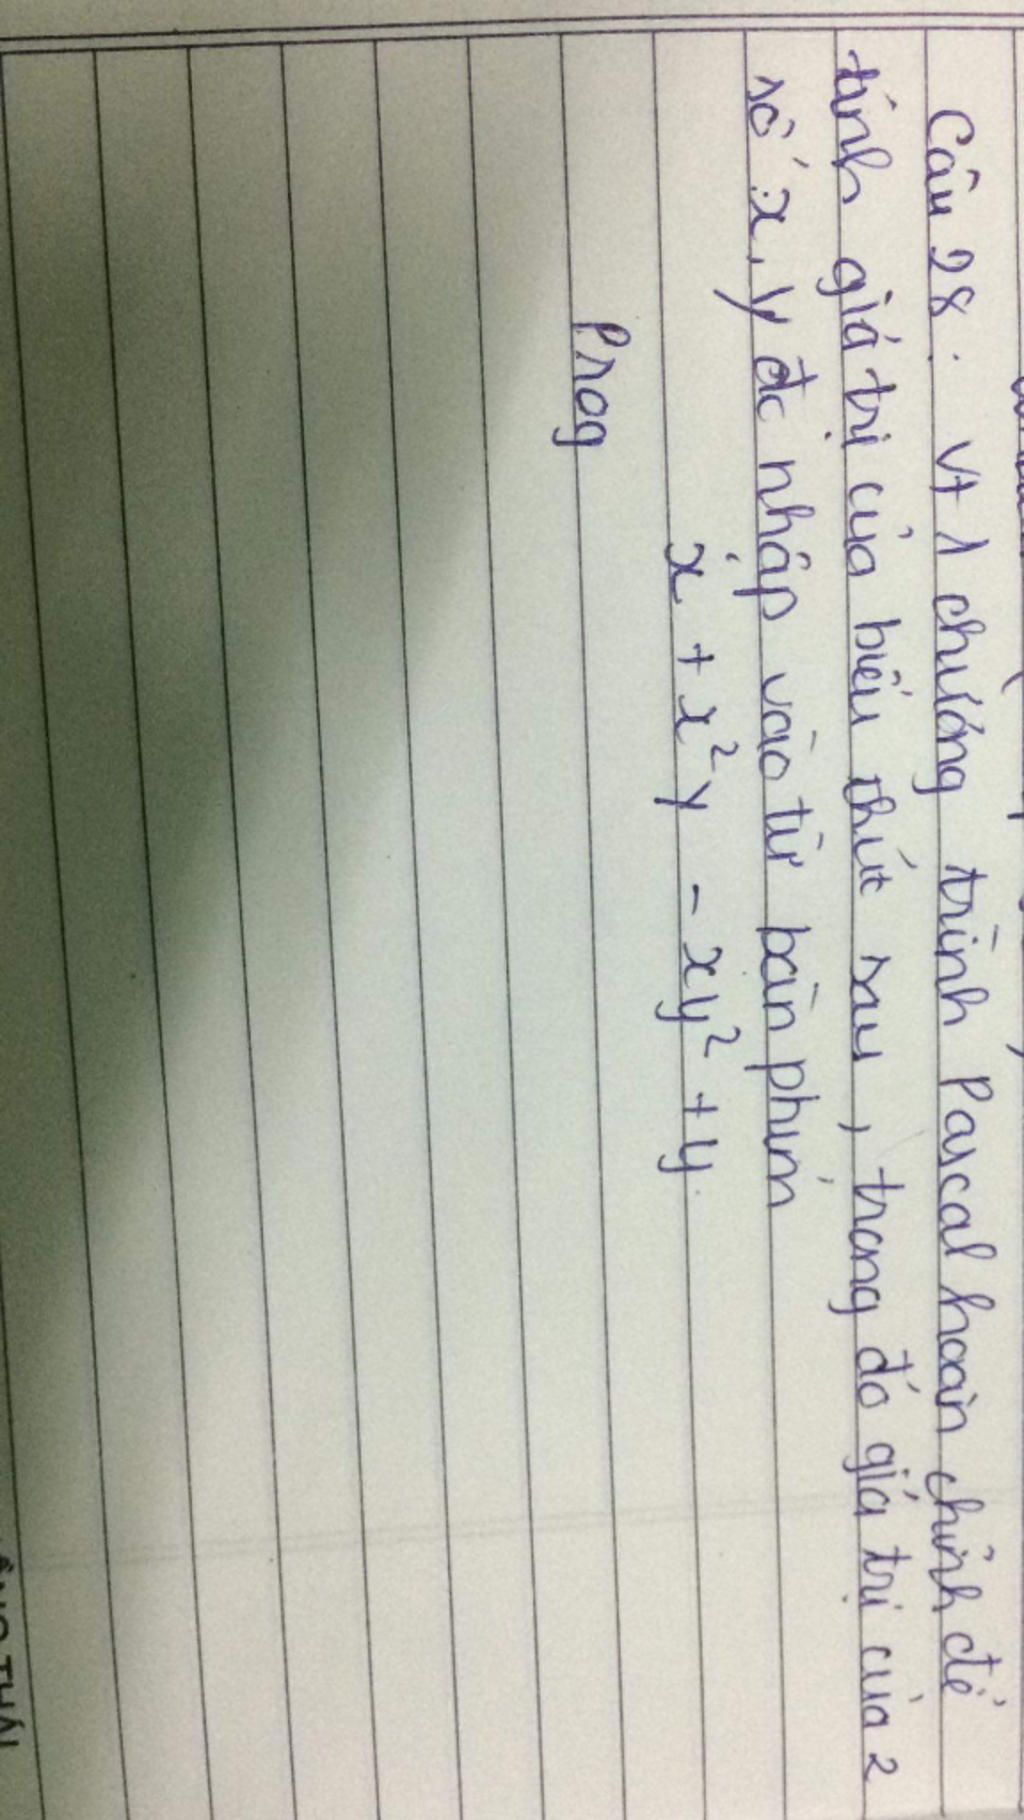 Câu 28. Vt 1 chương trình Pascal hoàn chỉnh để
tính giá trị của biểu thức sau, trong đó giá trị của 2
số x, y đc nhập vào từ bàn phím
x + x²y - xy² + y.
Prog